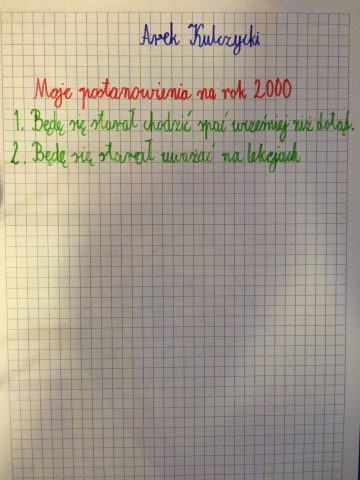 Arek Kulczycki
Moje postanowienia na rok 2000
1. Będę się starał chodzić spać wcześniej niż dotąd.
2. Będę się starał uważać na lekcjach